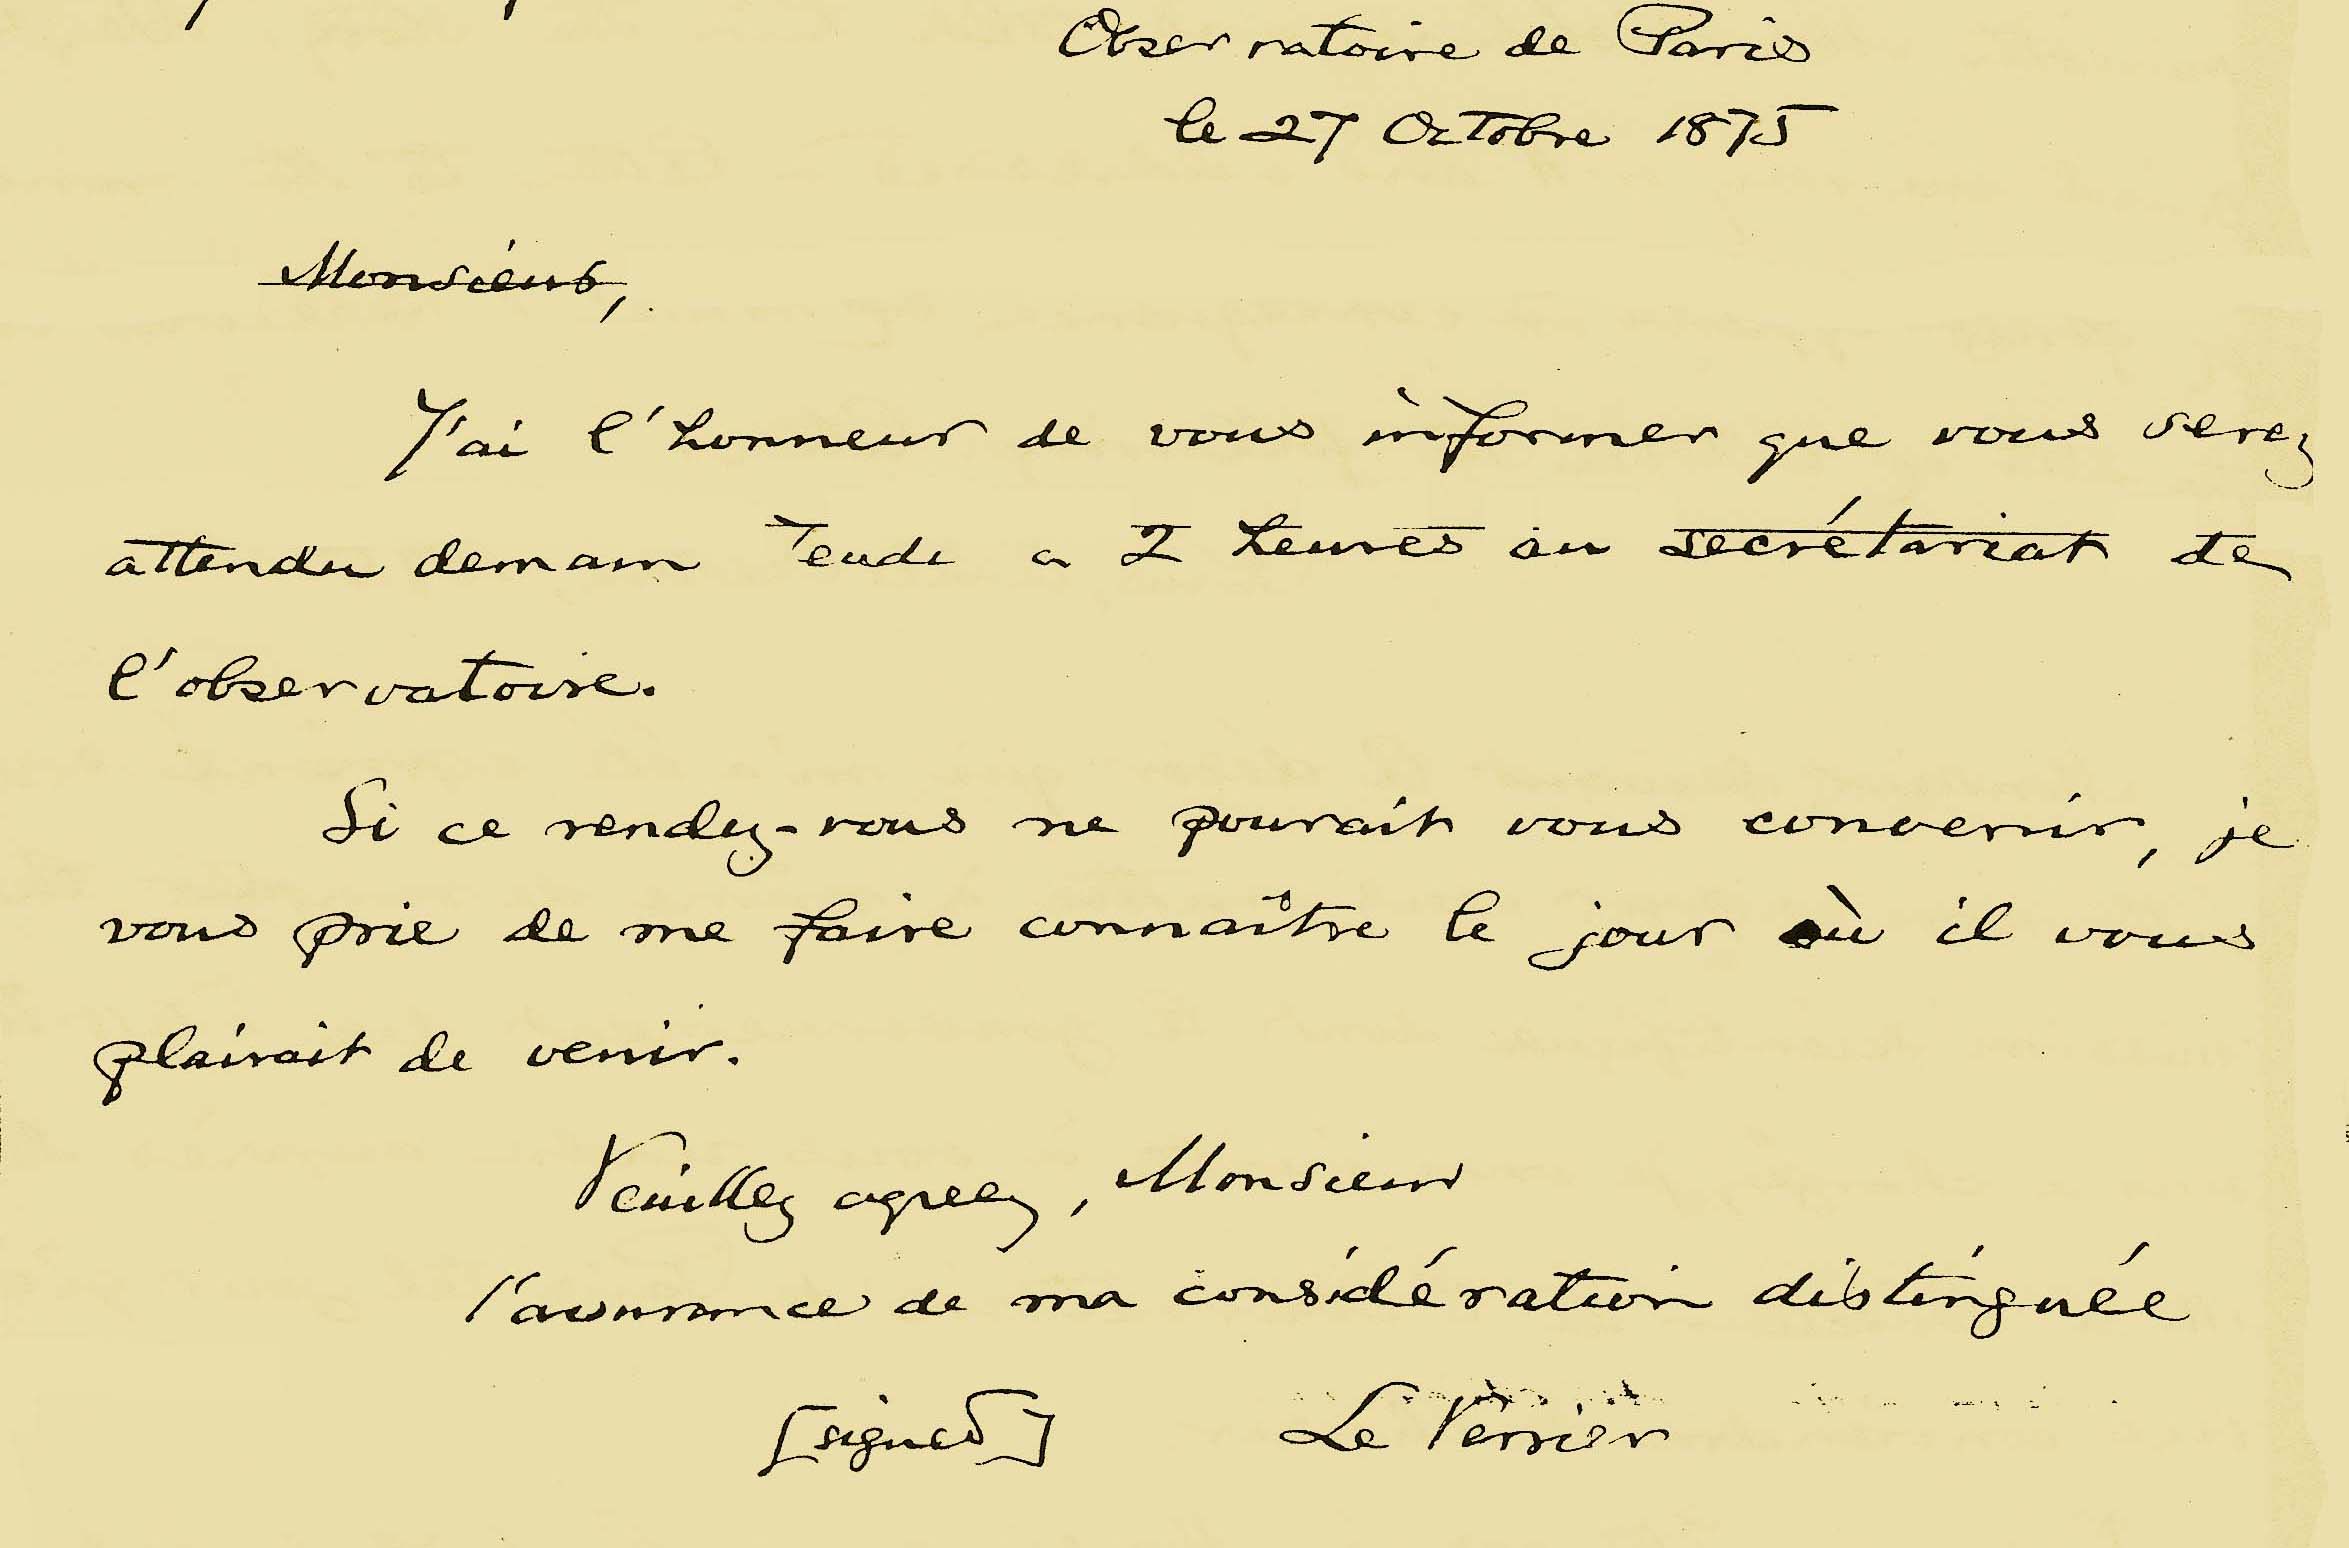 Observatoire de Paris
le 27 Octobre 1875
Monsieur,
J'ai l'honneur de vous informer que vous serez
attendu demain Jeudi a 2 heures au secrétariat de
l'observatoire.
Si ce rendez-vous ne pourait vous convenir, je
vous prie de me faire connaître le jour où il vous
plairait de venir.
Veuillez agreez, Monsieur
l'assurance de ma considération distinguée
[signed] Le Verrier